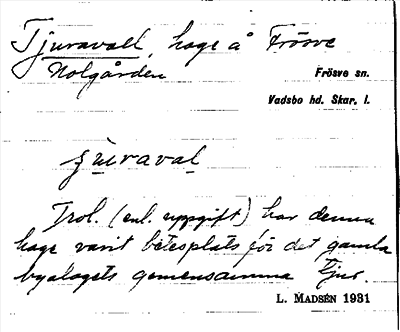 Tjuravall, hage å Frösve
Nolgården
Frösve sn.
Vadsbo hd. Skar. l.
ʃùraval
Trol. (enl. uppgift) har denna
hage varit betesplats för det gamla
byalagets gemensamma tjur.
L. Madsén 1931